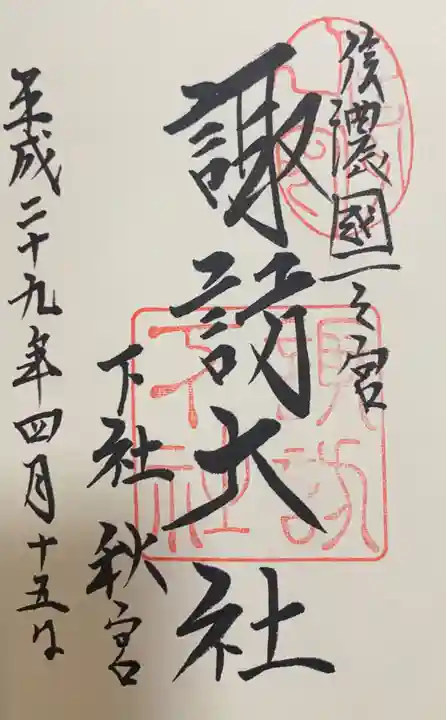 信濃國一之宮
諏訪大社
下社 秋宮
平成二十九年四月十五日
諏訪
下社